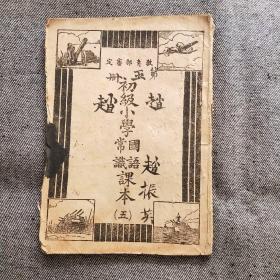 教育部審定
第五冊
初級小學
國語
常識
課本
(五)
趙
趙
趙振英